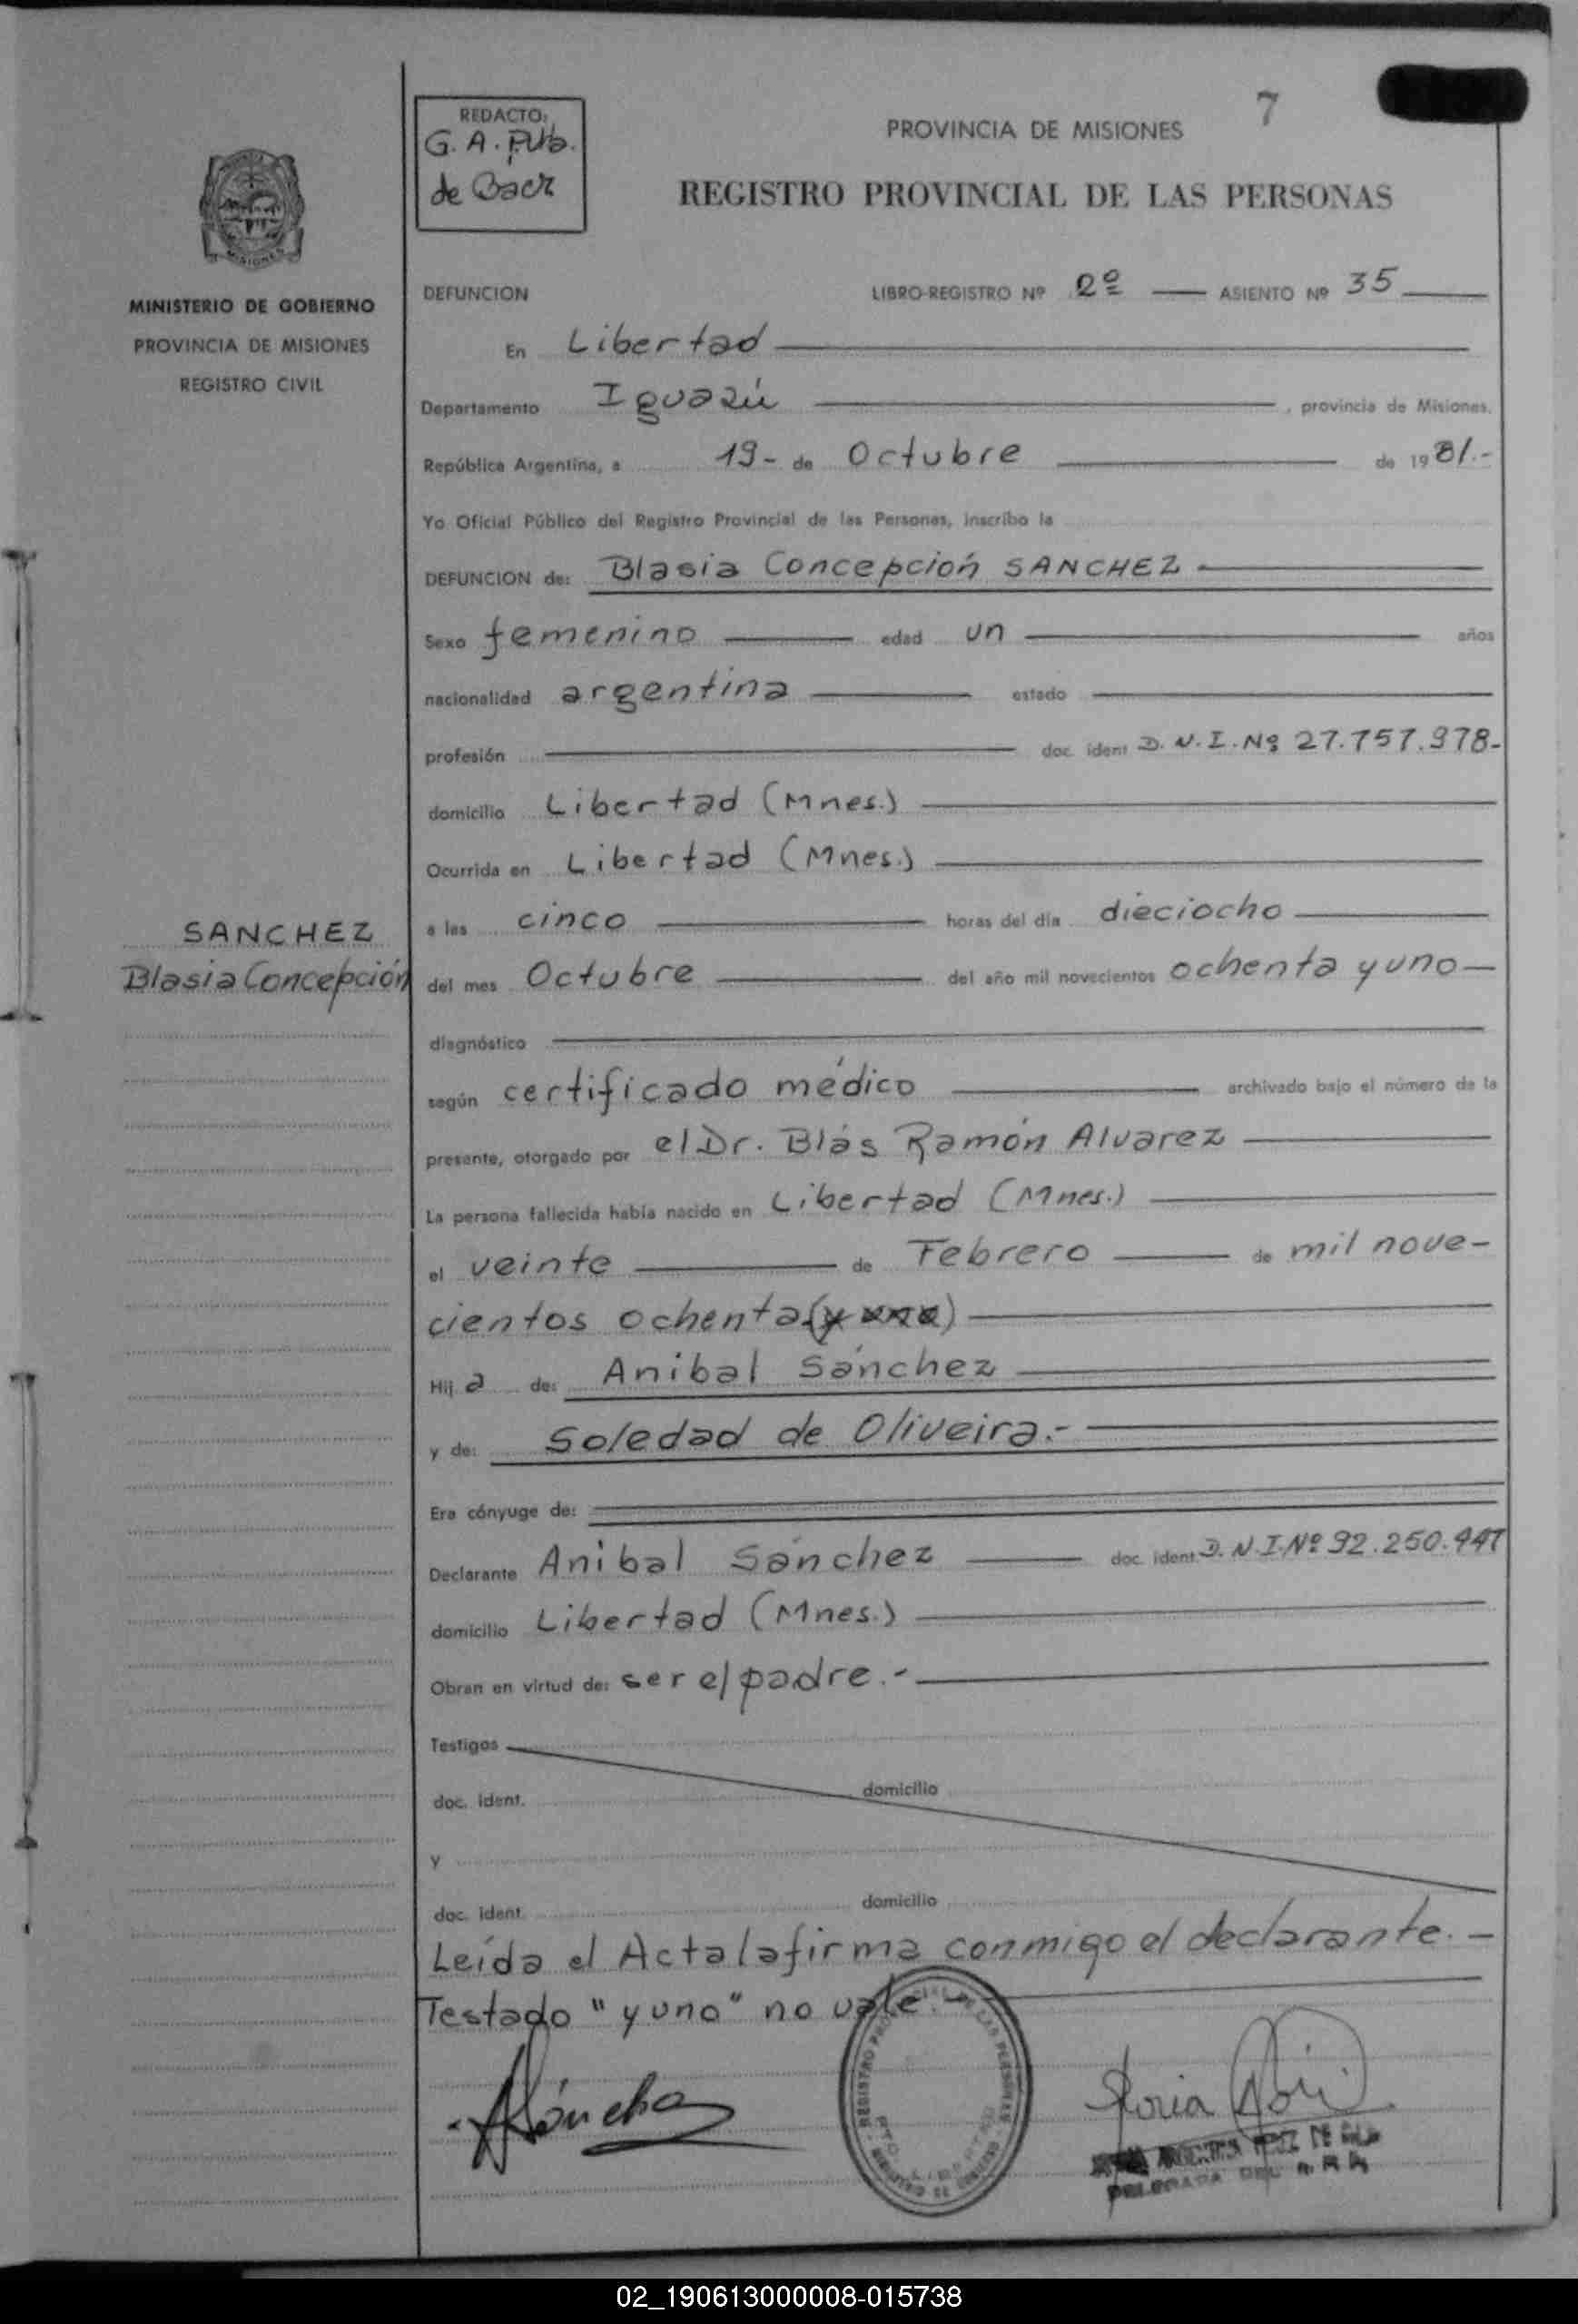 7
REDACTO:
G. A.
de Baez
PROVINCIA DE MISIONES
REGISTRO PROVINCIAL DE LAS PERSONAS
MISIONES
MINISTERIO DE GOBIERNO
PROVINCIA DE MISIONES
REGISTRO CIVIL
DEFUNCION LIBRO-REGISTRO Nº 2º ASIENTO Nº 35
En Libertad
Departamento Iguazú, provincia de Misiones.
República Argentina, a 19- de Octubre de 1981.-
Yo Oficial Público del Registro Provincial de las Personas, inscribo la
DEFUNCION de: Blasia Concepción SANCHEZ
Sexo femenino edad un años
nacionalidad argentina estado
profesión doc. ident D.N.I. Nº 27.757.978-
domicilio Libertad (Mnes.)
Ocurrida en Libertad (Mnes.)
SANCHEZ
Blasia Concepción
a las cinco horas del día dieciocho
del mes Octubre del año mil novecientos ochenta y uno
diagnóstico
según certificado médico archivado bajo el número de la
presente, otorgado por el Dr. Blás Ramón Alvarez
La persona fallecida había nacido en Libertad (Mnes.)
el veinte de Febrero de mil nove-
cientos ochenta (y uno)
Hij a de: Anibal Sánchez
y de: Soledad de Oliveira.-
Era cónyuge de:
Declarante Anibal Sánchez doc. ident. D.N.I. Nº 92.250.447
domicilio Libertad (Mnes.)
Obran en virtud de: ser el padre.-
Testigos
doc. ident. domicilio
y
doc. ident. domicilio
Leída el Acta la firma conmigo el declarante.-
Testado "y uno" no vale.-
REGISTRO PROVINCIAL DE LAS PERSONAS
Sánchez
02_190613000008-015738